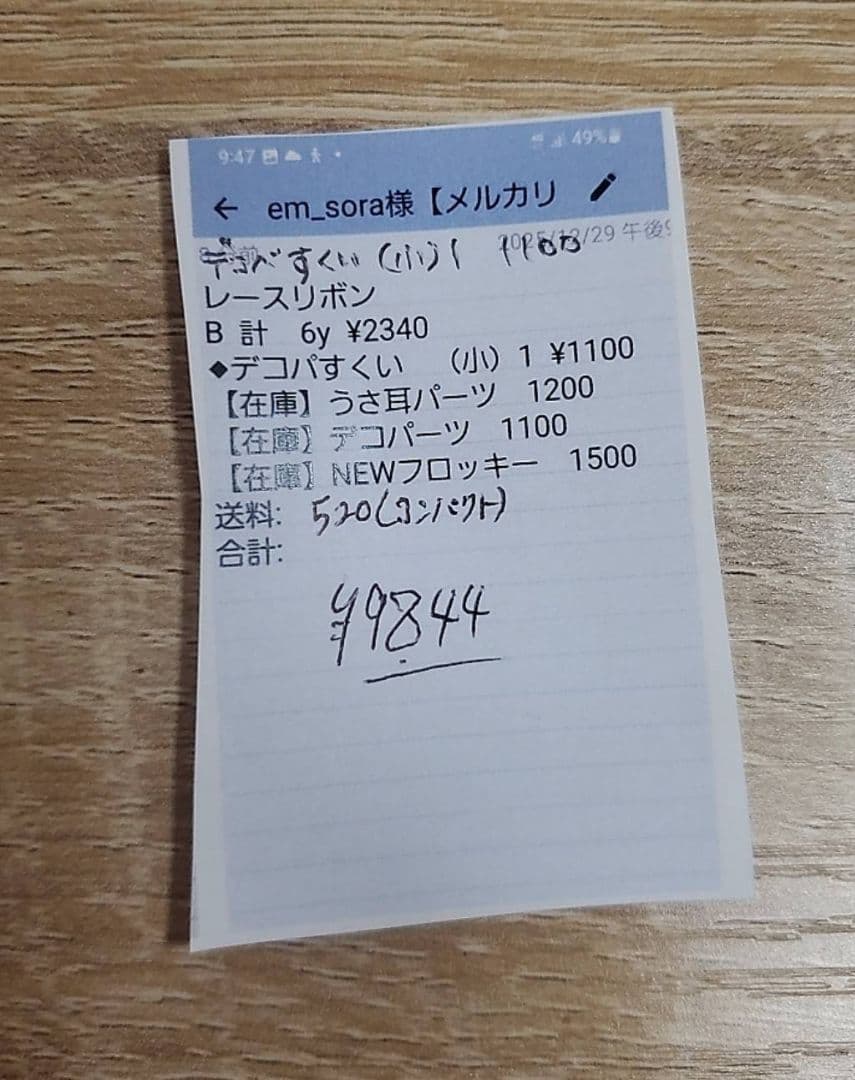 9:47 49%
← em_sora様【メルカリ
2025/12/29 午後9
デコパすくい (小) 1 1100
レースリボン
B 計 6y ¥2340
◆デコパすくい (小) 1 ¥1100
【在庫】うさ耳パーツ 1200
【在庫】デコパーツ 1100
【在庫】NEWフロッキー 1500
送料: 520(コンパクト)
合計:
¥9844